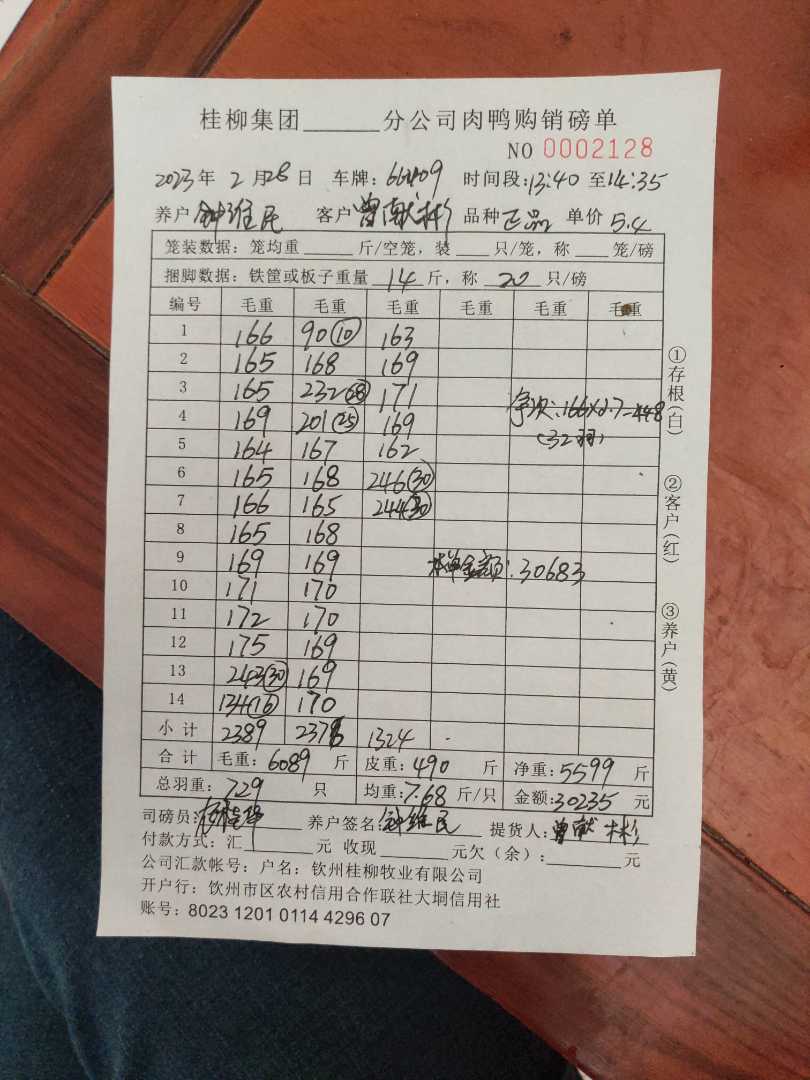 桂柳集团______分公司肉鸭购销磅单
NO 0002128
2023年 2月28日 车牌:66409 时间段:13:40 至14:35
养户 钟维民 客户 曾献彬 品种 正品 单价 5.4
笼装数据: 笼均重 ____ 斤/空笼, 装 ___ 只/笼, 称 ___ 笼/磅
捆脚数据: 铁筐或板子重量 14 斤, 称 20 只/磅
编号 毛重 毛重 毛重 毛重 毛重 毛重
1 166 90(10) 163
2 165 168 169
3 165 232(28) 171
4 169 201(25) 169
5 164 167 162
6 165 168 246(30)
7 166 165 244(30)
8 165 168
9 169 169
10 171 170
11 172 170
12 175 169
13 243(30) 169
14 134(16) 170
:166×2.7=448
(32羽)
本单金额:30683
小计 2389 2376 1324
合计 毛重: 6089 斤 皮重: 490 斤 净重: 5599 斤
总羽重: 729 只 均重: 7.68 斤/只 金额: 30235 元
司磅员: 养户签名: 钟维民 提货人: 曾献彬
付款方式: 汇______元 收现______元欠(余): ______元
公司汇款帐号: 户名: 钦州桂柳牧业有限公司
开户行: 钦州市区农村信用合作联社大垌信用社
账号: 8023 1201 0114 4296 07
①存根(白)
②客户(红)
③养户(黄)